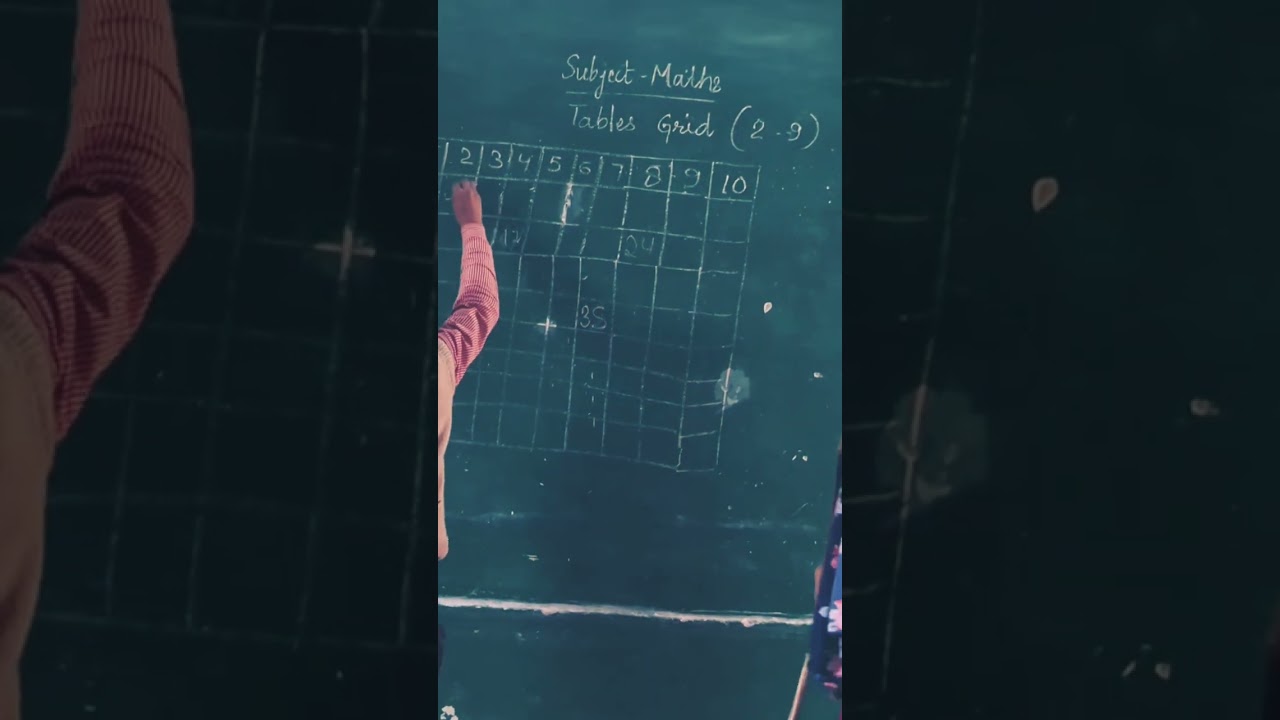 Subject - Maths
Tables Grid (2-9)
2 3 4 5 6 7 8 9 10
24
35